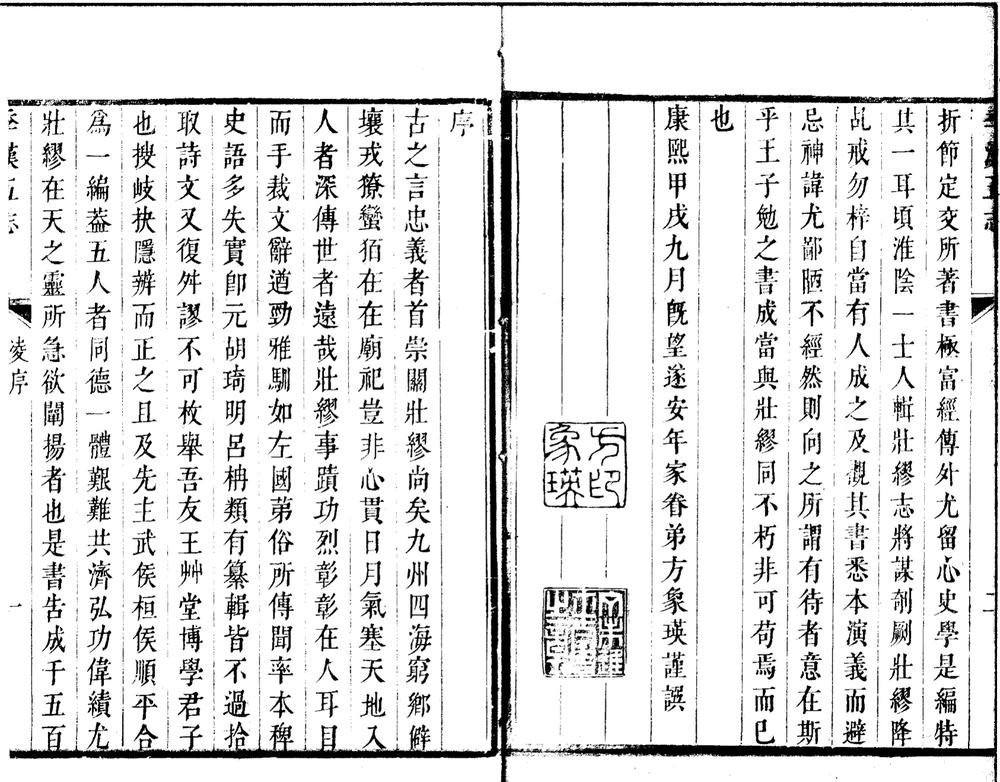 折節定交所著書極富經傳外尤留心史學是編特
其一耳頃淮陰一士人輯壯繆志將謀剞劂壯繆降
乩戒勿梓自當有人成之及觀其書悉本演義而避
忌神諱尤鄙陋不經然則向之所謂有待者意在斯
乎王子勉之書成當與壯繆同不朽非可苟焉而已
也
康熙甲戌九月旣望遂安年家眷弟方象瑛謹譔
方印象瑛
序
古之言忠義者首崇關壯繆尚矣九州四海窮鄉僻
壤戎獠蠻貊在在廟祀豈非心貫日月氣塞天地入
人者深傳世者遠哉壯繆事蹟功烈彰彰在人耳目
而手裁文辭遒勁雅馴如左國第俗所傳聞率本稗
史語多失實卽元胡琦明呂柟類有纂輯皆不過拾
取詩文又復舛謬不可枚舉吾友王艸堂博學君子
也搜岐抉隱辨而正之且及先主武侯桓侯順平合
爲一編葢五人者同德一體艱難共濟弘功偉績尤
壯繆在天之靈所急欲闡揚者也是書告成千五百
季漢五志
凌序
一